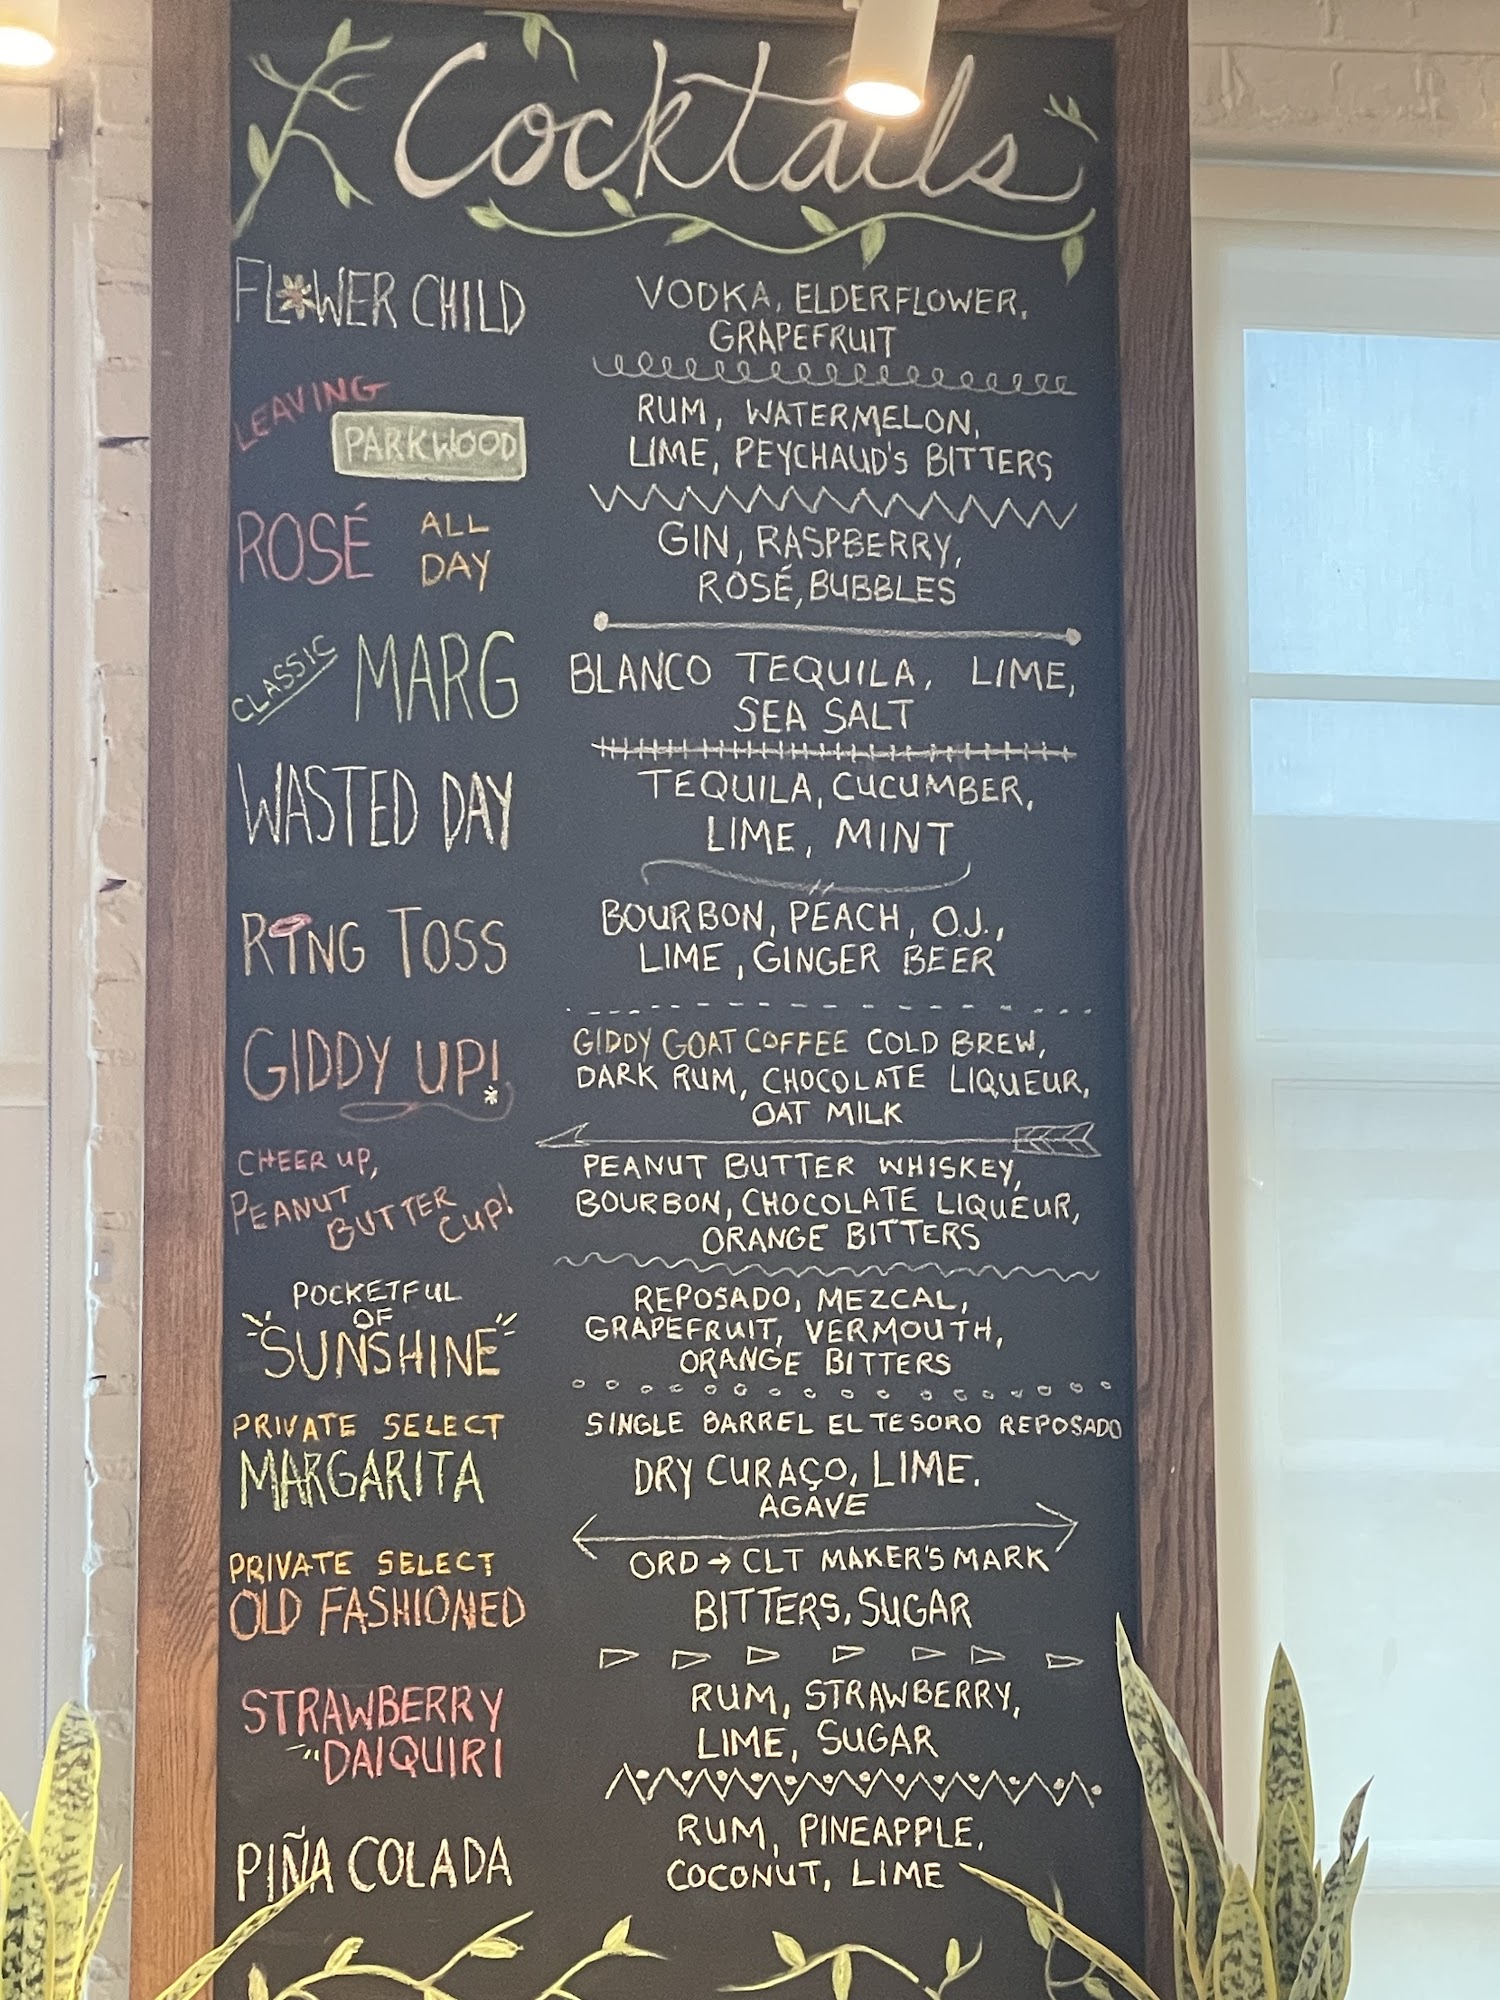 Cocktails
FLOWER CHILD
VODKA, ELDERFLOWER,
GRAPEFRUIT
LEAVING
PARKWOOD
RUM, WATERMELON,
LIME, PEYCHAUD'S BITTERS
ROSÉ ALL
DAY
GIN, RASPBERRY,
ROSÉ, BUBBLES
CLASSIC MARG
BLANCO TEQUILA, LIME,
SEA SALT
WASTED DAY
TEQUILA, CUCUMBER,
LIME, MINT
RING TOSS
BOURBON, PEACH, O.J.,
LIME, GINGER BEER
GIDDY UP!*
GIDDY GOAT COFFEE COLD BREW,
DARK RUM, CHOCOLATE LIQUEUR,
OAT MILK
CHEER UP,
PEANUT
BUTTER
CUP!
PEANUT BUTTER WHISKEY,
BOURBON, CHOCOLATE LIQUEUR,
ORANGE BITTERS
POCKETFUL
OF
SUNSHINE
REPOSADO, MEZCAL,
GRAPEFRUIT, VERMOUTH,
ORANGE BITTERS
PRIVATE SELECT
MARGARITA
SINGLE BARREL EL TESORO REPOSADO
DRY CURAÇO, LIME.
AGAVE
PRIVATE SELECT
OLD FASHIONED
ORD → CLT MAKER'S MARK
BITTERS, SUGAR
STRAWBERRY
DAIQUIRI
RUM, STRAWBERRY,
LIME, SUGAR
PIÑA COLADA
RUM, PINEAPPLE,
COCONUT, LIME